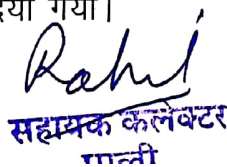 दिया गया।
Rahul
सहायक कलेक्टर
पाली